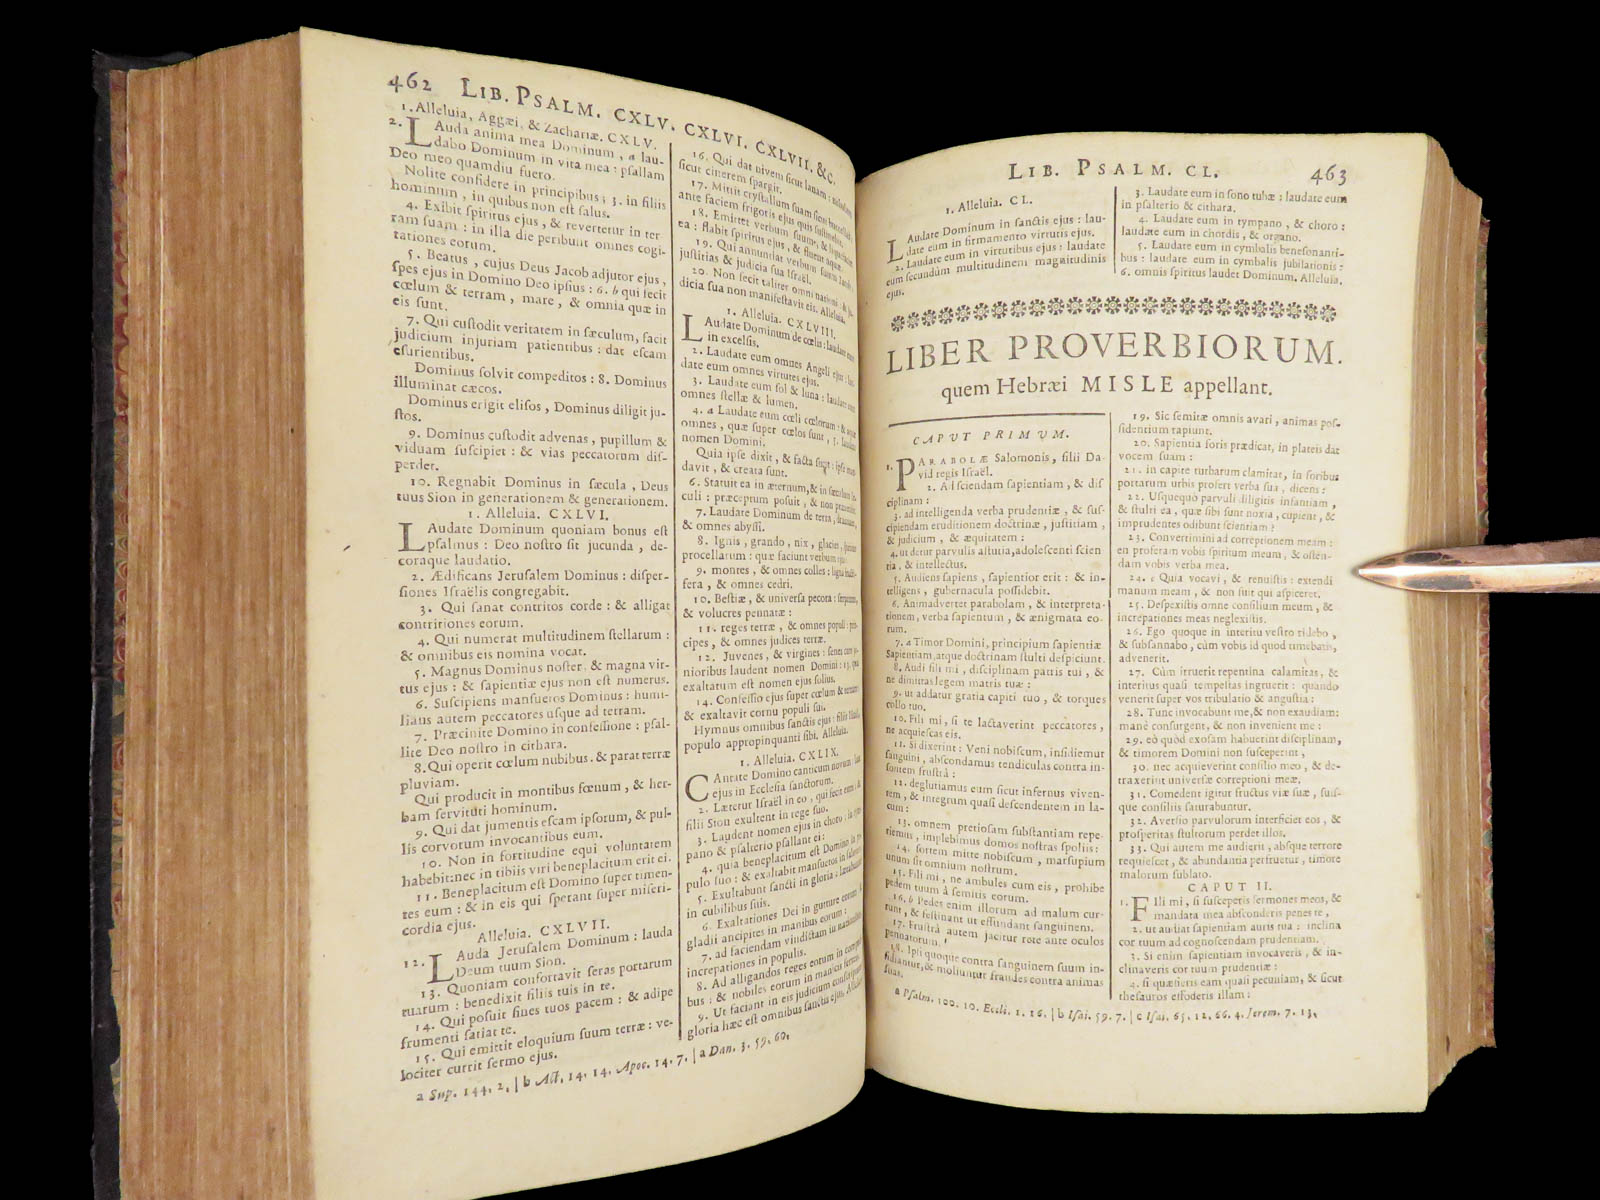 462 LIB. PSALM. CXLV. CXLVI. CXLVII. &c.
1. Alleluia, Aggæi, & Zachariæ. CXLV.
2. LAuda anima mea Dominum, a lau-
dabo Dominum in vita mea: psallam
Deo meo quamdiu fuero.
Nolite confidere in principibus; 3. in filiis
hominum, in quibus non est salus.
4. Exibit spiritus ejus, & revertetur in ter
ram suam: in illa die peribunt omnes cogi-
tationes eorum.
5. Beatus, cujus Deus Jacob adjutor ejus,
spes ejus in Domino Deo ipsius: 6. b qui fecit
cœlum & terram, mare, & omnia quæ in
eis sunt.
7. Qui custodit veritatem in sæculum, facit
judicium injuriam patientibus: dat escam
esurientibus.
Dominus solvit compeditos: 8. Dominus
illuminat cæcos.
Dominus erigit elisos, Dominus diligit ju-
stos.
9. Dominus custodit advenas, pupillum &
viduam suscipiet: & vias peccatorum dis-
perdet.
10. Regnabit Dominus in sæcula, Deus
tuus Sion in generationem & generationem.
1. Alleluia. CXLVI.
LAudate Dominum quoniam bonus est
psalmus: Deo nostro sit jucunda, de-
coraque laudatio.
2. Ædificans Jerusalem Dominus: disper-
siones Israëlis congregabit.
3. Qui sanat contritos corde: & alligat
contritiones eorum.
4. Qui numerat multitudinem stellarum:
& omnibus eis nomina vocat.
5. Magnus Dominus noster, & magna vir-
tus ejus: & sapientiæ ejus non est numerus.
6. Suscipiens mansuetos Dominus: humi-
lians autem peccatores usque ad terram.
7. Præcinite Domino in confessione: psal-
lite Deo nostro in cithara.
8. Qui operit cœlum nubibus, & parat terræ
pluviam.
Qui producit in montibus fœnum, & her-
bam servitúti hominum.
9. Qui dat jumentis escam ipsorum, & pul-
lis corvorum invocantibus eum.
10. Non in fortitudine equi voluntatem
habebit: nec in tibiis viri beneplacitum erit ei.
11. Beneplacitum est Domino super timen-
tes eum: & in eis qui sperant super miseri-
cordia ejus.
Alleluia. CXLVII.
12. LAuda Jerusalem Dominum: lauda
Deum tuum Sion.
13. Quoniam confortavit seras portarum
tuarum: benedixit filiis tuis in te.
14. Qui posuit fines tuos pacem: & adipe
frumenti satiat te.
15. Qui emittit eloquium suum terræ: ve-
lociter currit sermo ejus.
16. Qui dat nivem sicut lanam: nebulam
sicut cinerem spargit.
17. Mittit crystallum suam sicut buccellas:
ante faciem frigoris ejus quis sustinebit.
18. Emittet verbum suum, & liquefaciet
ea: flabit spiritus ejus, & fluent aquæ.
19. Qui annuntiat verbum suum Jacob,
justitias & judicia sua Israël.
20. Non fecit taliter omni nationi: & ju-
dicia sua non manifestavit eis. Alleluia.
1. Alleluia. CXLVIII.
LAudate Dominum de cœlis: laudate eum
in excelsis.
2. Laudate eum omnes Angeli ejus: lau-
date eum omnes virtutes ejus.
3. Laudate eum sol & luna: laudate eum
omnes stellæ & lumen.
4. a Laudate eum cœli cœlorum: & aquæ
omnes, quæ super cœlos sunt, 5. laudent
nomen Domini.
Quia ipse dixit, & facta sunt: ipse man
davit, & creata sunt.
6. Statuit ea in æternum, & in sæculum sæ
culi: præceptum posuit, & non præteribit.
7. Laudate Dominum de terra, dracones,
& omnes abyssi.
8. Ignis, grando, nix, glacies, spiritus
procellarum: quæ faciunt verbum ejus:
9. montes, & omnes colles: ligna fructi-
fera, & omnes cedri.
10. Bestiæ, & universa pecora: serpentes,
& volucres pennatæ:
11. reges terræ, & omnes populi: prin-
cipes, & omnes judices terræ.
12. Juvenes, & virgines: senes cum ju-
nioribus laudent nomen Domini: 13. quia
exaltatum est nomen ejus solius.
14. Confessio ejus super cœlum & terram:
& exaltavit cornu populi sui.
Hymnus omnibus sanctis ejus: filiis Israël,
populo appropinquanti sibi. Alleluia.
1. Alleluia. CXLIX.
CAntate Domino canticum novum: laus
ejus in Ecclesia sanctorum.
2. Lætetur Israël in eo, qui fecit eum: &
filii Sion exultent in rege suo.
3. Laudent nomen ejus in choro: in tym
pano & psalterio psallant ei:
4. quia beneplacitum est Domino in po
pulo suo: & exaltabit mansuetos in salutem.
5. Exultabunt sancti in gloria: lætabuntur
in cubilibus suis.
6. Exaltationes Dei in gutture eorum: &
gladii ancipites in manibus eorum:
7. ad faciendam vindictam in nationibus
increpationes in populis.
8. Ad alligandos reges eorum in compedi
bus: & nobiles eorum in manicis ferreis.
9. Ut faciant in eis judicium conscriptum:
gloria hæc est omnibus sanctis ejus. Alleluia.
a Sup. 144. 2. | b Act. 14. 14. Apoc. 14. 7. | a Dan. 3. 59. 60.
LIB. PSALM. CL. 463
1. Alleluia. CL.
LAudate Dominum in sanctis ejus: lau-
date eum in firmamento virtutis ejus.
2. Laudate eum in virtutibus ejus: laudate
eum secundùm multitudinem magnitudinis
ejus.
3. Laudate eum in sono tubæ: laudate eum
in psalterio & cithara.
4. Laudate eum in tympano, & choro:
laudate eum in chordis, & organo.
5. Laudate eum in cymbalis benesonanti-
bus: laudate eum in cymbalis jubilationis:
6. omnis spiritus laudet Dominum. Alleluia.
LIBER PROVERBIORUM.
quem Hebræi MISLE appellant.
CAPUT PRIMUM.
1. PARABOLÆ Salomonis, filii Da-
vid regis Israël.
2. Ad sciendam sapientiam, & dis
ciplinam:
3. ad intelligenda verba prudentiæ, & sus-
cipiendam eruditionem doctrinæ, justitiam,
& judicium, & æquitatem:
4. ut detur parvulis astutia, adolescenti scien
tia, & intellectus.
5. Audiens sapiens, sapientior erit: & in-
telligens, gubernacula possidebit.
6. Animadvertet parabolam, & interpreta-
tionem, verba sapientum, & ænigmata eo-
rum.
7. a Timor Domini, principium sapientiæ
Sapientiam, atque doctrinam stulti despiciunt.
8. Audi fili mi, disciplinam patris tui, &
ne dimittas legem matris tuæ:
9. ut addatur gratia capiti tuo, & torques
collo tuo.
10. Fili mi, si te lactaverint peccatores,
ne acquiescas eis.
11. Si dixerint: Veni nobiscum, insidiemur
sanguini, abscondamus tendiculas contra in-
sontem frustrà:
12. deglutiamus eum sicut infernus viven-
tem, & integrum quasi descendentem in la-
cum:
13. omnem pretiosam substantiam repe-
riemus, implebimus domos nostras spoliis:
14. sortem mitte nobiscum, marsupium
unum sit omnium nostrum.
15. Fili mi, ne ambules cum eis, prohibe
pedem tuum à semitis eorum.
16. b Pedes enim illorum ad malum cur-
runt, & festinant ut effundant sanguinem.
17. Frustrà autem jacitur rete ante oculos
pennatorum.
18. Ipsi quoque contra sanguinem suum in-
sidiantur, & moliuntur fraudes contra animas
suas.
19. Sic semitæ omnis avari, animas pos-
sidentium rapiunt.
20. Sapientia foris prædicat, in plateis dat
vocem suam:
21. in capite turbarum clamitat, in foribus
portarum urbis profert verba sua, dicens:
22. Usquequò parvuli diligitis infantiam,
& stulti ea, quæ sibi sunt noxia, cupient, &
imprudentes odibunt scientiam?
23. Convertimini ad correptionem meam:
en proferam vobis spiritum meum, & osten-
dam vobis verba mea.
24. c Quia vocavi, & renuistis: extendi
manum meam, & non fuit qui aspiceret.
25. Despexistis omne consilium meum, &
increpationes meas neglexistis.
26. Ego quoque in interitu vestro ridebo,
& subsannabo, cùm vobis id quod timebatis,
advenerit.
27. Cùm irruerit repentina calamitas, &
interitus quasi tempestas ingruerit: quando
venerit super vos tribulatio & angustia:
28. Tunc invocabunt me, & non exaudiam:
manè consurgent, & non invenient me:
29. eò quòd exosam habuerint disciplinam,
& timorem Domini non susceperint,
30. nec acquieverint consilio meo, & de-
traxerint universæ correptioni meæ.
31. Comedent igitur fructus viæ suæ, suis-
que consiliis saturabuntur.
32. Aversio parvulorum interficiet eos, &
prosperitas stultorum perdet illos.
33. Qui autem me audierit, absque terrore
requiescet, & abundantia perfruetur, timore
malorum sublato.
CAPUT II.
1. FIli mi, si susceperis sermones meos, &
mandata mea absconderis penes te,
2. ut audiat sapientiam auris tua: inclina
cor tuum ad cognoscendam prudentiam.
3. Si enim sapientiam invocaveris, & in-
clinaveris cor tuum prudentiæ:
4. si quæsieris eam quasi pecuniam, & sicut
thesauros effoderis illam:
a Psalm. 100. 10. Eccli. 1. 16. | b Isai. 59. 7. | c Isai. 65. 12. 66. 4. Jerem. 7. 13.